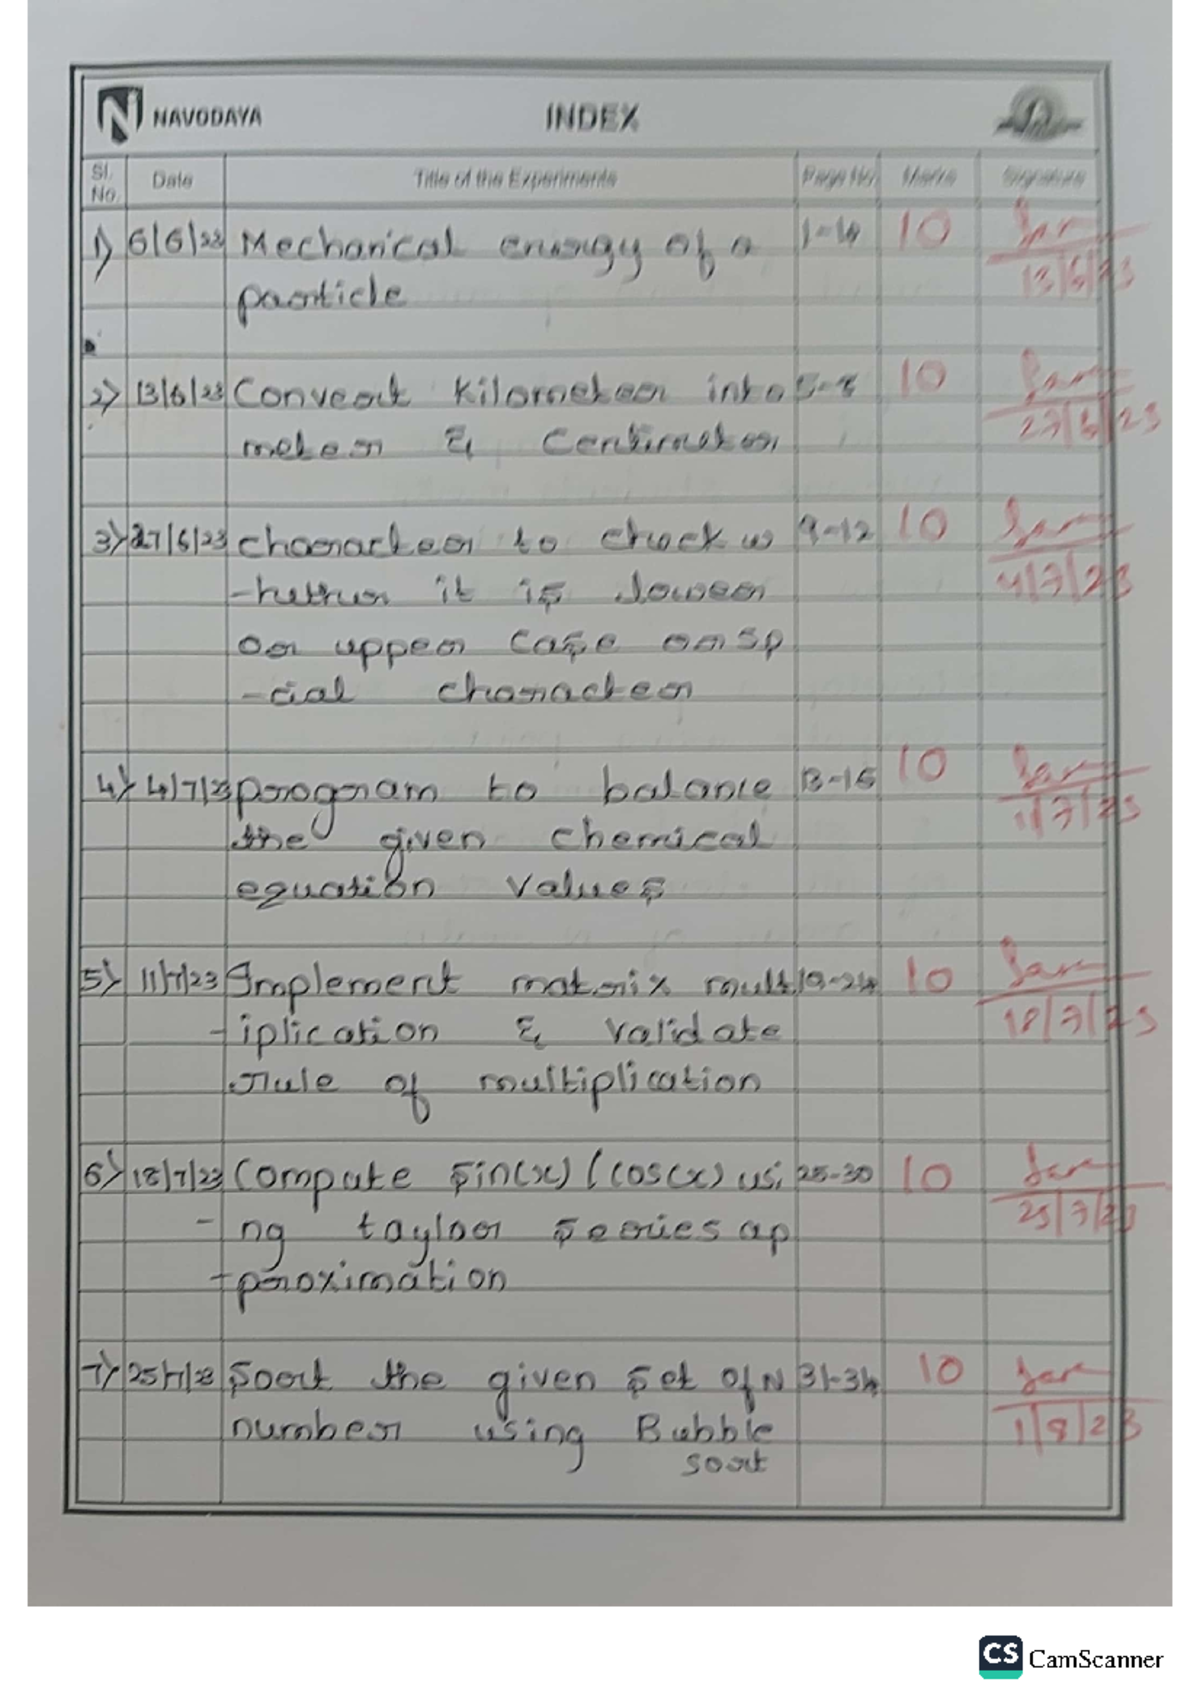 NAVODAYA INDEX
Sl. No. Date Title of the Experiments Page No. Marks Signature
1) 6/6/23 Mechanical energy of a 1-4 10
particle 13/6/23
2) 13/6/23 Convert Kilometer into 5-8 10
meter & Centimeter 27/6/23
3) 27/6/23 character to check w 9-12 10
-hether it is lower 4/7/23
or upper case or sp
-cial character
4) 4/7/23 program to balance 13-18 10
the given chemical 11/7/23
equation values
5) 11/7/23 Implement matrix mult 19-24 10
-iplication & validate 18/7/23
rule of multiplication
6) 18/7/23 Compute sin(x) (cos(x) usi 25-30 10
- ng taylor series ap 25/7/23
-proximation
7) 25/7/23 Sort the given set of N 31-34 10
number using Bubble 1/8/23
sort
CS CamScanner